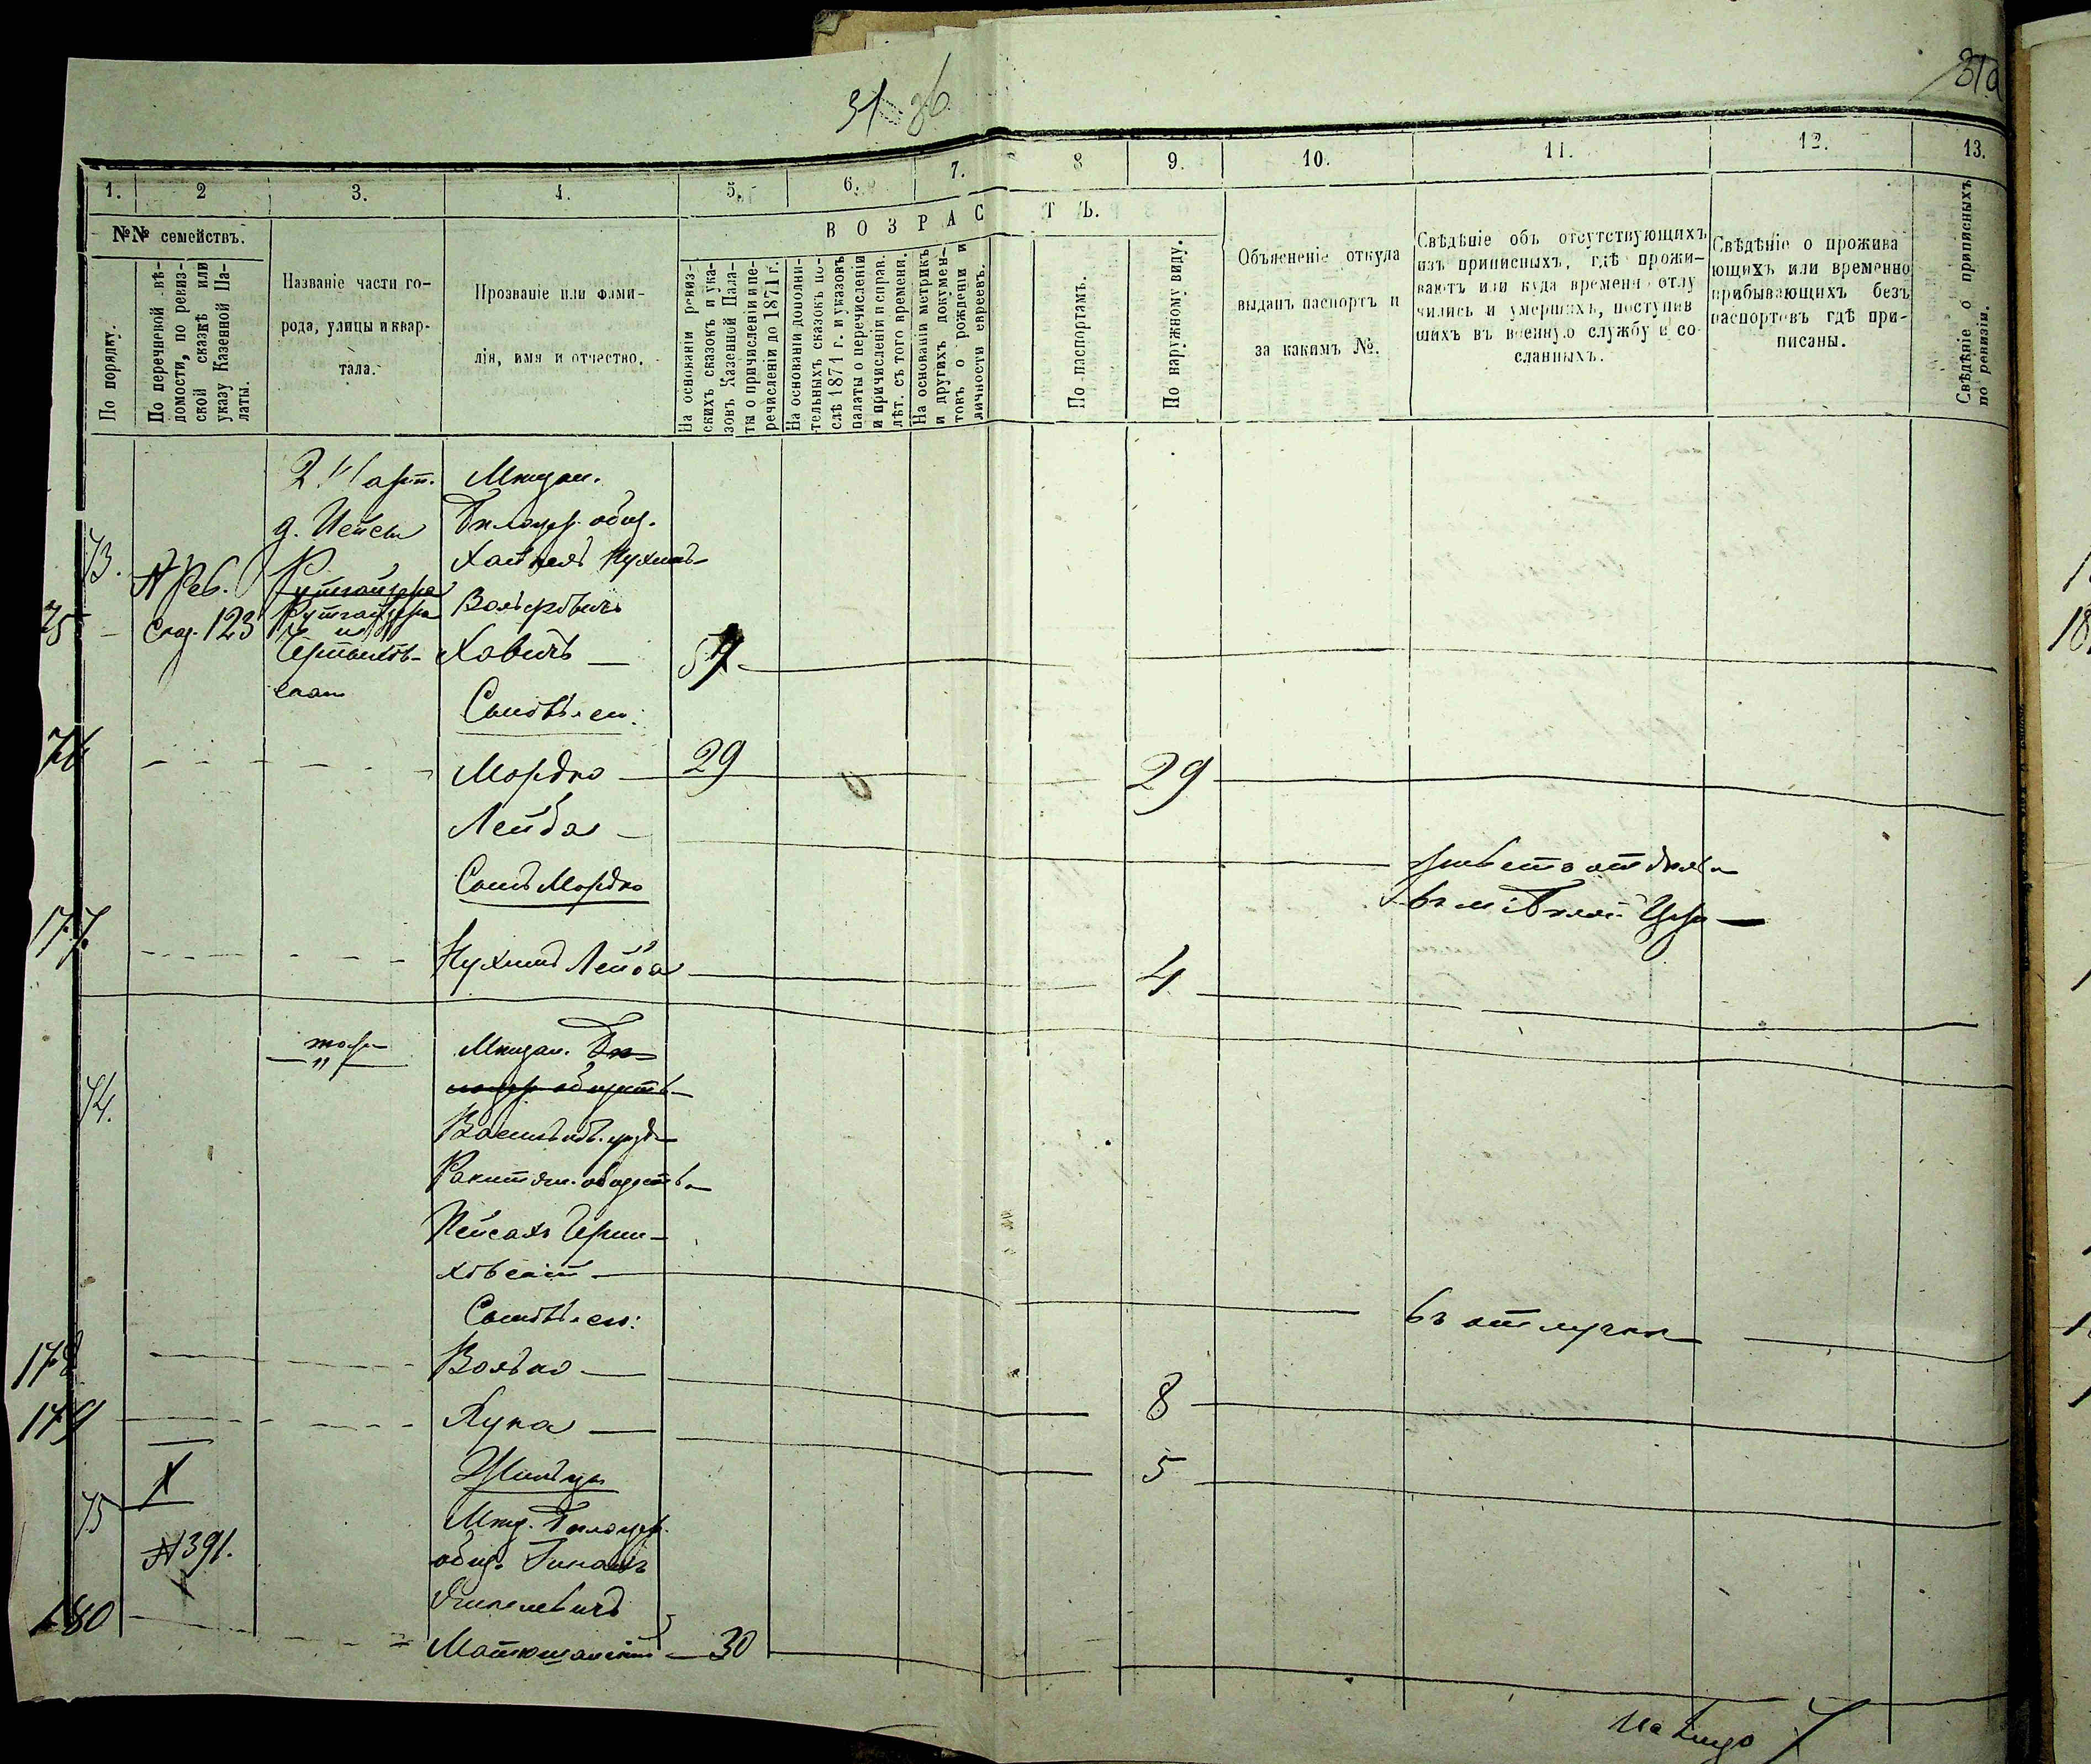 31 об
31а
1.
2
3.
4.
5.
6.
7.
8
9.
10.
11.
12.
13.
№№ семействъ.
По порядку.
По перечневой вѣ-
домости, по ревиз-
ской сказкѣ или
указу Казенной Па-
латы.
Названіе части го-
рода, улицы и квар-
тала.
Прозваніе или фами-
лія, имя и отчество.
ВОЗРАСТЪ.
На основаніи ревиз-
скихъ сказокъ и ука-
зовъ Казенной Пала-
ты о причисленіи и пе-
речисленіи до 1871 г.
На основаніи дополни-
тельныхъ сказокъ по-
слѣ 1871 г. и указовъ
палаты о перечисленіи
и причисленіи и справ.
лѣт. съ того времени.
На основаніи метрикъ
и другихъ докумен-
товъ о рожденіи и
личности евреевъ.
По паспортамъ.
По наружному виду.
Объясненіе откуда
выданъ паспортъ и
за какимъ №.
Свѣдѣніе объ отсутствующихъ
изъ приписныхъ, гдѣ прожи-
ваютъ или куда времени отлу
чились и умершихъ, поступив
шихъ въ военную службу и со
сланныхъ.
Свѣдѣніе о прожива
ющихъ или временно
прибывающихъ безъ
паспортовъ гдѣ при-
писаны.
Свѣдѣніе о приписныхъ
по ревизіи.
2 Част.
Мѣщан.
Бѣлоцер. общ.
73.
№ Рев.
75
Ска. 123
Вольфовичъ
Ховичъ
57
Сыновья его:
76
Мордко
29
29
Лейба
Сынъ Мордко
въ м. Бѣлой Церк
177.
Нухимъ Лейба
4
тоже
Мѣщан. Бѣ
лоцер обществ
74.
Васильков. уѣзд
Ракитян. обществ.
Пейсахъ Черни-
ховскій
Сыновья его:
въ отлучкѣ
178
Волько
8
179
Лука
5
X
75
Мѣщ. Бѣлоцер.
№ 391.
общ.
180
Матюшанскій
30
На лицо 7